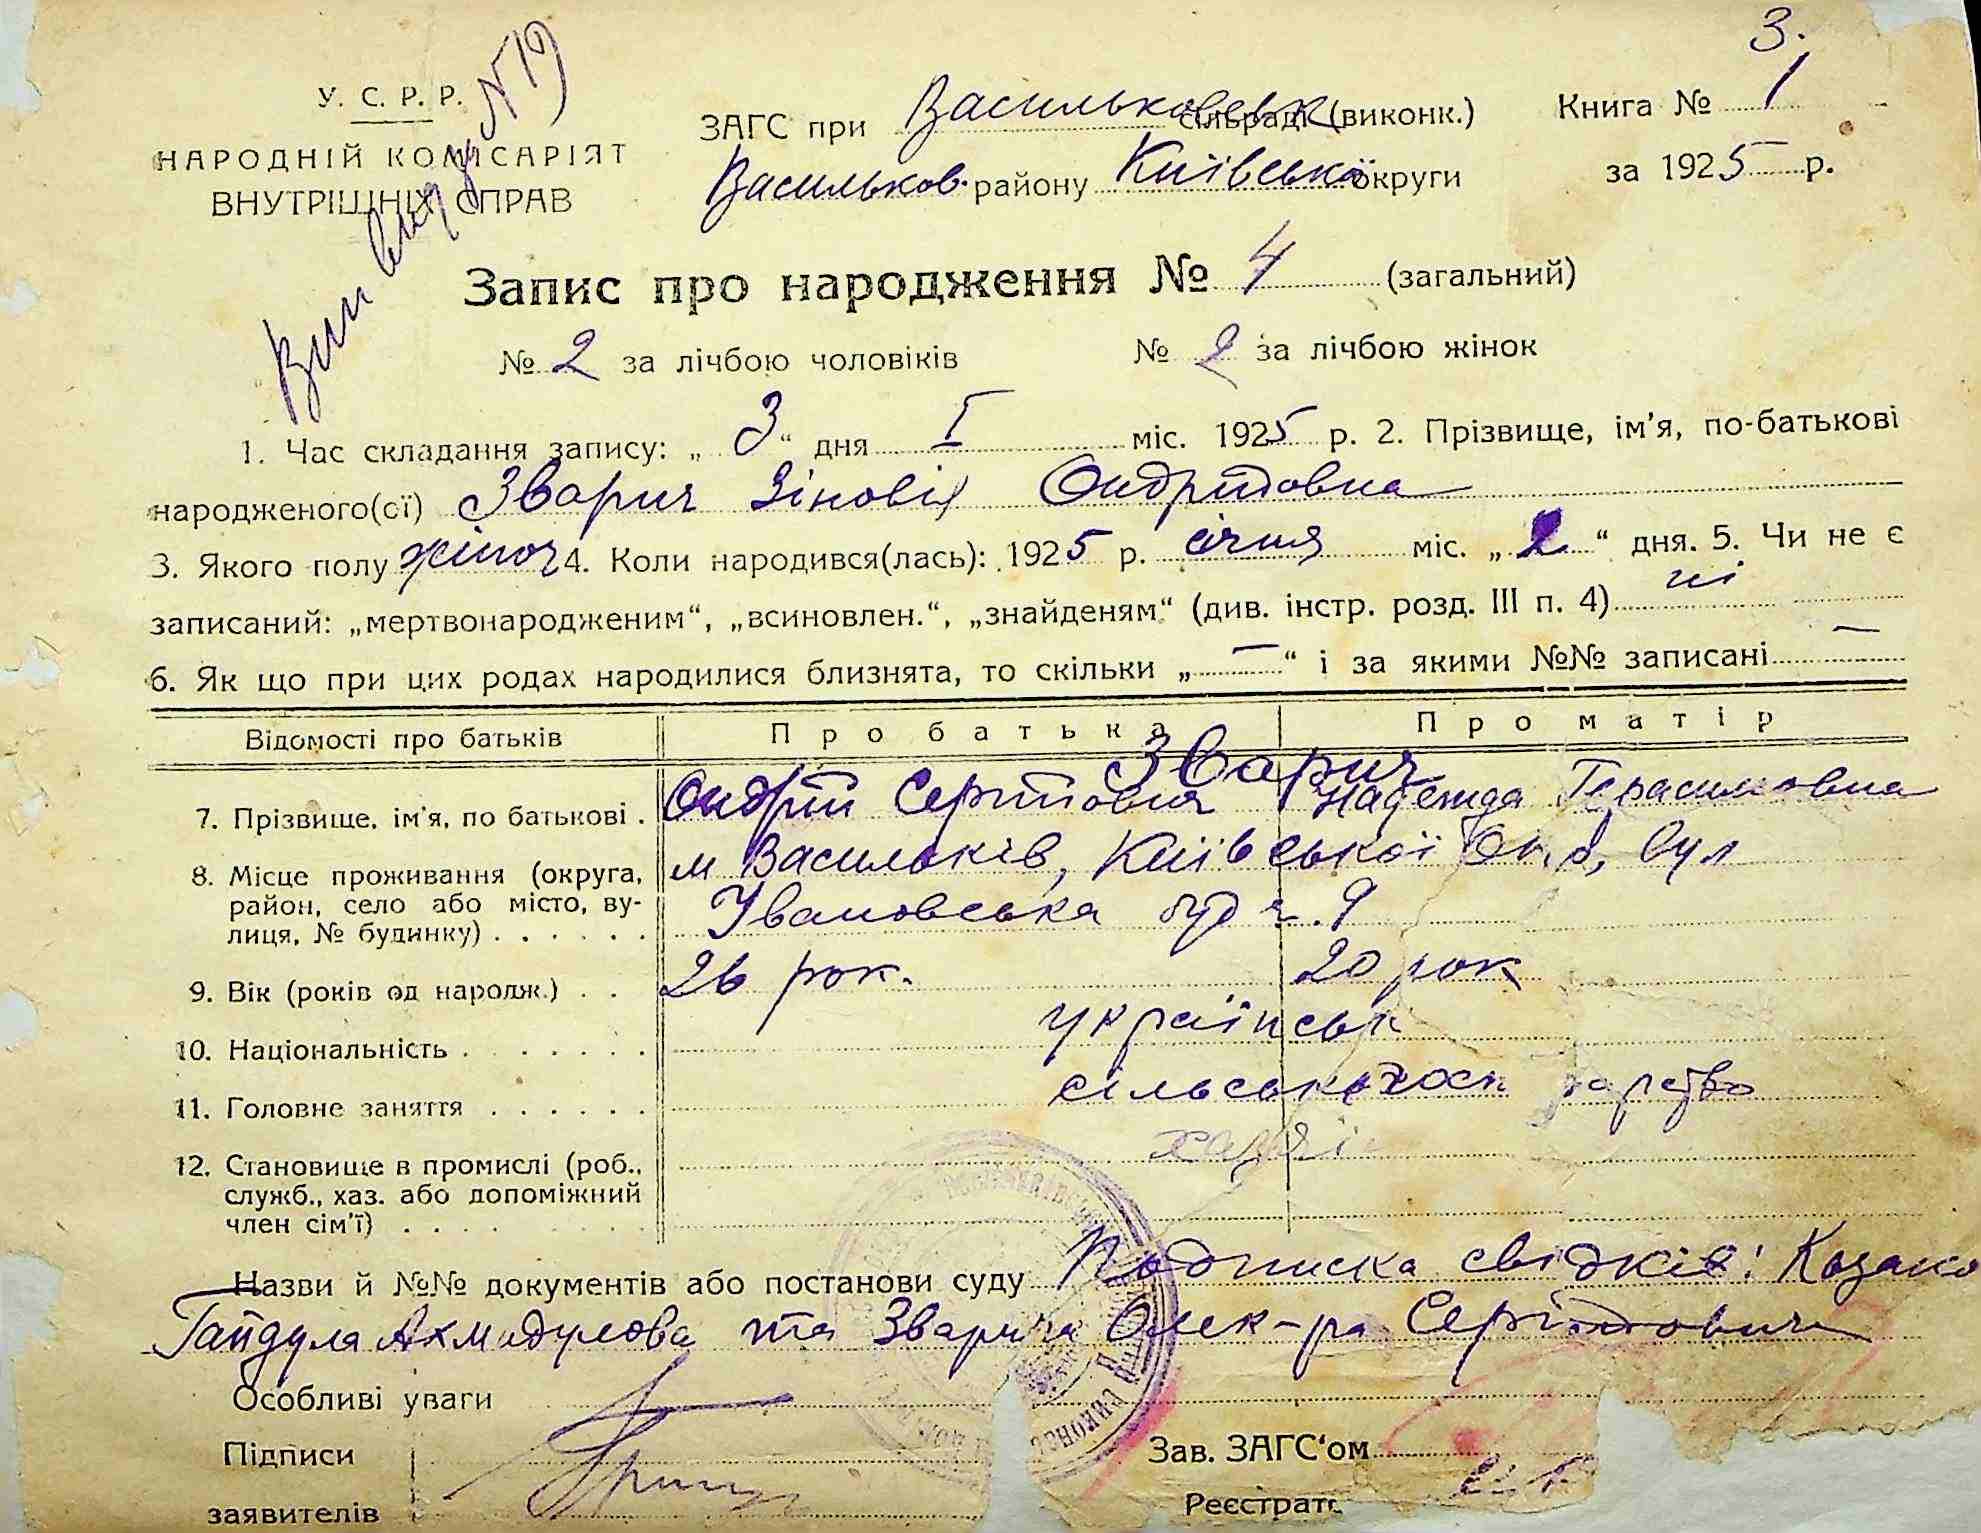 3.
У. С. Р. Р.
НАРОДНІЙ КОМІСАРІЯТ
ВНУТРІШНІХ СПРАВ
Вип видру N 19
ЗАГС при Васильковськ сільраді (виконк.)
Васильков. району Київської округи
Книга № 1
за 1925 р.
Запис про народження № 4 (загальний)
№ 2 за лічбою чоловіків № 2 за лічбою жінок
1. Час складання запису: „3“ дня I міс. 1925 р. 2. Прізвище, ім'я, по-батькові
народженого(ої) Зварич Зіновія Ондріїовна
3. Якого полу жіноч 4. Коли народився(лась): 1925 р. січня міс. „2“ дня. 5. Чи не є
записаний: „мертвонародженим“, „всиновлен.“, „знайденям“ (див. інстр. розд. III п. 4) ні
6. Як що при цих родах народилися близнята, то скільки „—“ і за якими №№ записані —
Відомості про батьків Про батька Про матір
Зварич
7. Прізвище, ім'я, по батькові . Ондрій Сергійович Надежда Герасимовна
8. Місце проживання (округа, район, село або місто, вулиця, № будинку) . . . . . . м Васильків, Київської Окр, вул
Івановська буд ч. 9
9. Вік (років од народж.) . . 26 рок. 20 рок
10. Національність . . . . . . . українськ
11. Головне заняття . . . . . . сільське хоспадарство
12. Становище в промислі (роб., служб., хаз. або допоміжний член сім'ї) . . . . . . .
Назви й №№ документів або постанови суду Подписка свідків: Козако
Гайдула Ахмедулова та Зварича Олек-ра Сергійовича
Особливі уваги
Підписи
заявителів
Зав. ЗАГС‘ом
Реєстрат